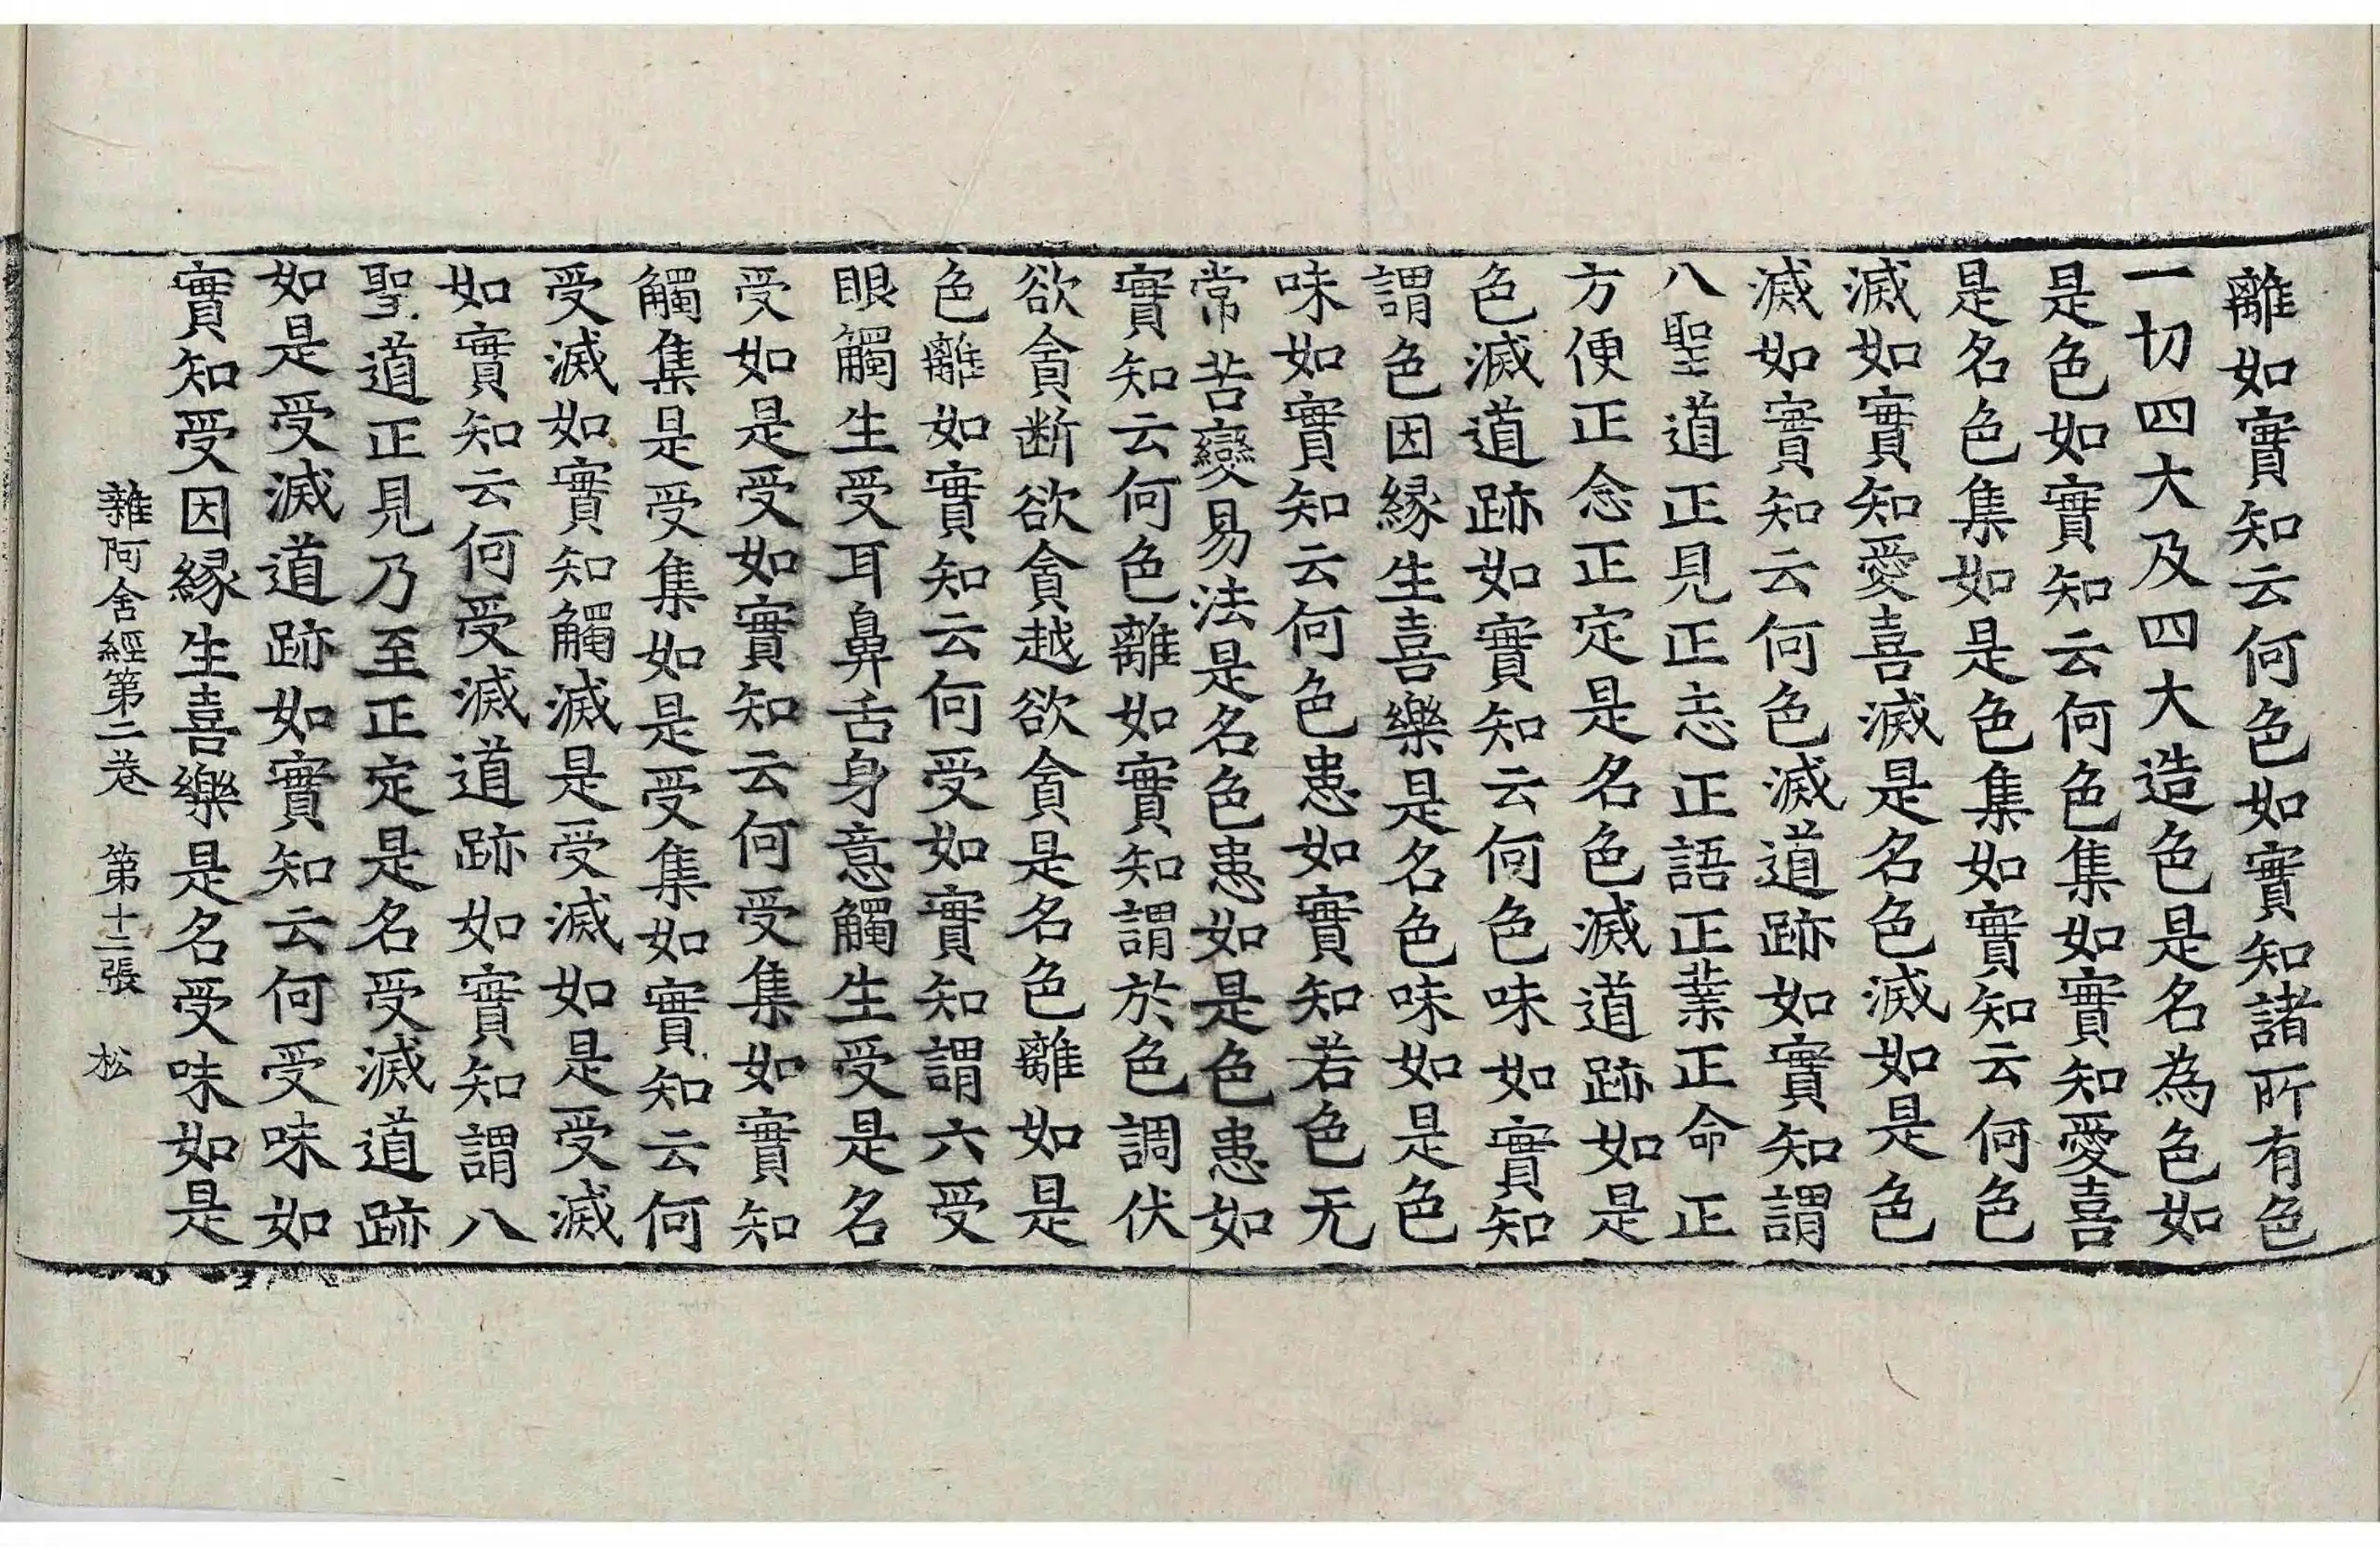 離如實知云何色如實知諸所有色
一切四大及四大造色是名為色如
是色如實知云何色集如實知愛喜
是名色集如是色集如實知云何色
滅如實知愛喜滅是名色滅如是色
滅如實知云何色滅道跡如實知謂
八聖道正見正志正語正業正命正
方便正念正定是名色滅道跡如是
色滅道跡如實知云何色味如實知
謂色因緣生喜樂是名色味如是色
味如實知云何色患如實知若色无
常苦變易法是名色患如是色患如
實知云何色離如實知謂於色調伏
欲貪断欲貪越欲貪是名色離如是
色離如實知云何受如實知謂六受
眼觸生受耳鼻舌身意觸生受是名
受如是受如實知云何受集如實知
觸集是受集如是受集如實知云何
受滅如實知觸滅是受滅如是受滅
如實知云何受滅道跡如實知謂八
聖道正見乃至正定是名受滅道跡
如是受滅道跡如實知云何受味如
實知受因緣生喜樂是名受味如是
雜阿含經第二卷 第十二張 松